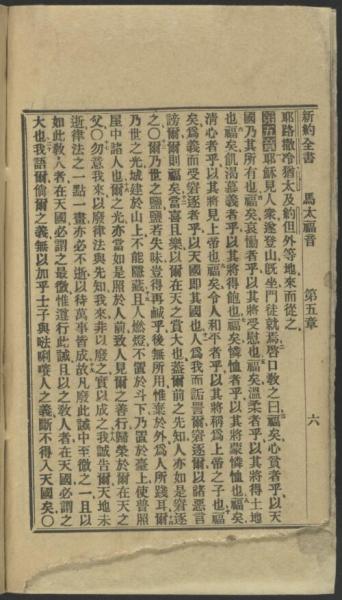 新約全書　馬太福音　第五章　六
耶路撒冷猶太及約但外等地來而從之
第五章耶穌見人衆遂登山旣坐門徒就焉啓口敎之曰福矣心貧者乎以天
國乃其所有也福矣哀慟者乎以其將受慰也福矣溫柔者乎以其將得土地
也福矣飢渴慕義者乎以其將得飽也福矣憐恤者乎以其將蒙憐恤也福矣
清心者乎以其將見上帝也福矣令人和平者乎以其將稱爲上帝之子也福
矣爲義而受窘逐者乎以天國卽其國也人爲我而詬詈爾窘逐爾以諸惡言
謗爾爾則福矣當喜且樂以爾在天之賞大也蓋爾前之先知人亦如是窘逐
之〇爾乃世之鹽鹽若失味豈得再鹹乎後無所用惟棄於外爲人所踐耳爾
乃世之光城建於山上不能隱藏且人燃燈不置於斗下乃置於臺上使普照
屋中諸人也爾之光亦當如是照於人前致人見爾之善行歸榮於爾在天之
父〇勿意我來以廢律法與先知我來非以廢之實以成之我誠告爾天地未
逝律法之一點一畫亦必不逝以待萬事皆成故凡廢此誡中至微之一且以
如此敎人者在天國必謂之最微惟遵行此誡且以之敎人者在天國必謂之
大也我語爾倘爾之義無以加乎士子與𠵽唎㘔人之義斷不得入天國矣〇